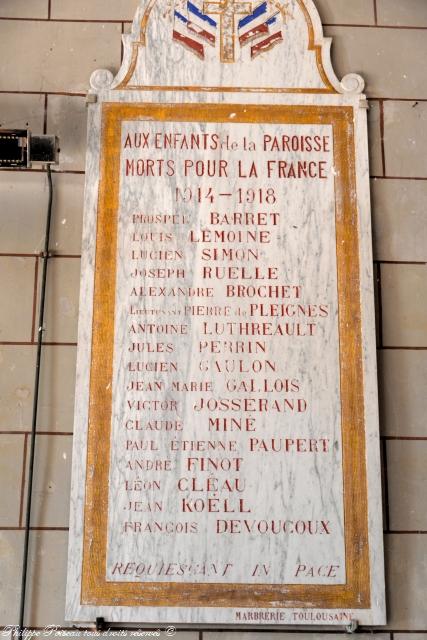 AUX ENFANTS de la PAROISSE
MORTS POUR LA FRANCE
1914-1918
PROSPER BARRET
LOUIS LEMOINE
LUCIEN SIMON
JOSEPH RUELLE
ALEXANDRE BROCHET
LIEUTENANT PIERRE de PLEIGNES
ANTOINE LUTHREAULT
JULES PERRIN
LUCIEN GAULON
JEAN MARIE GALLOIS
VICTOR JOSSERAND
CLAUDE MINÉ
PAUL ÉTIENNE PAUPERT
ANDRÉ FINOT
LÉON CLÉAU
JEAN KOËLL
FRANÇOIS DEVOUCOUX
REQUIESCANT IN PACE
MARBRERIE TOULOUSAINE
© Philippe Poiseau tous droits réservés ®